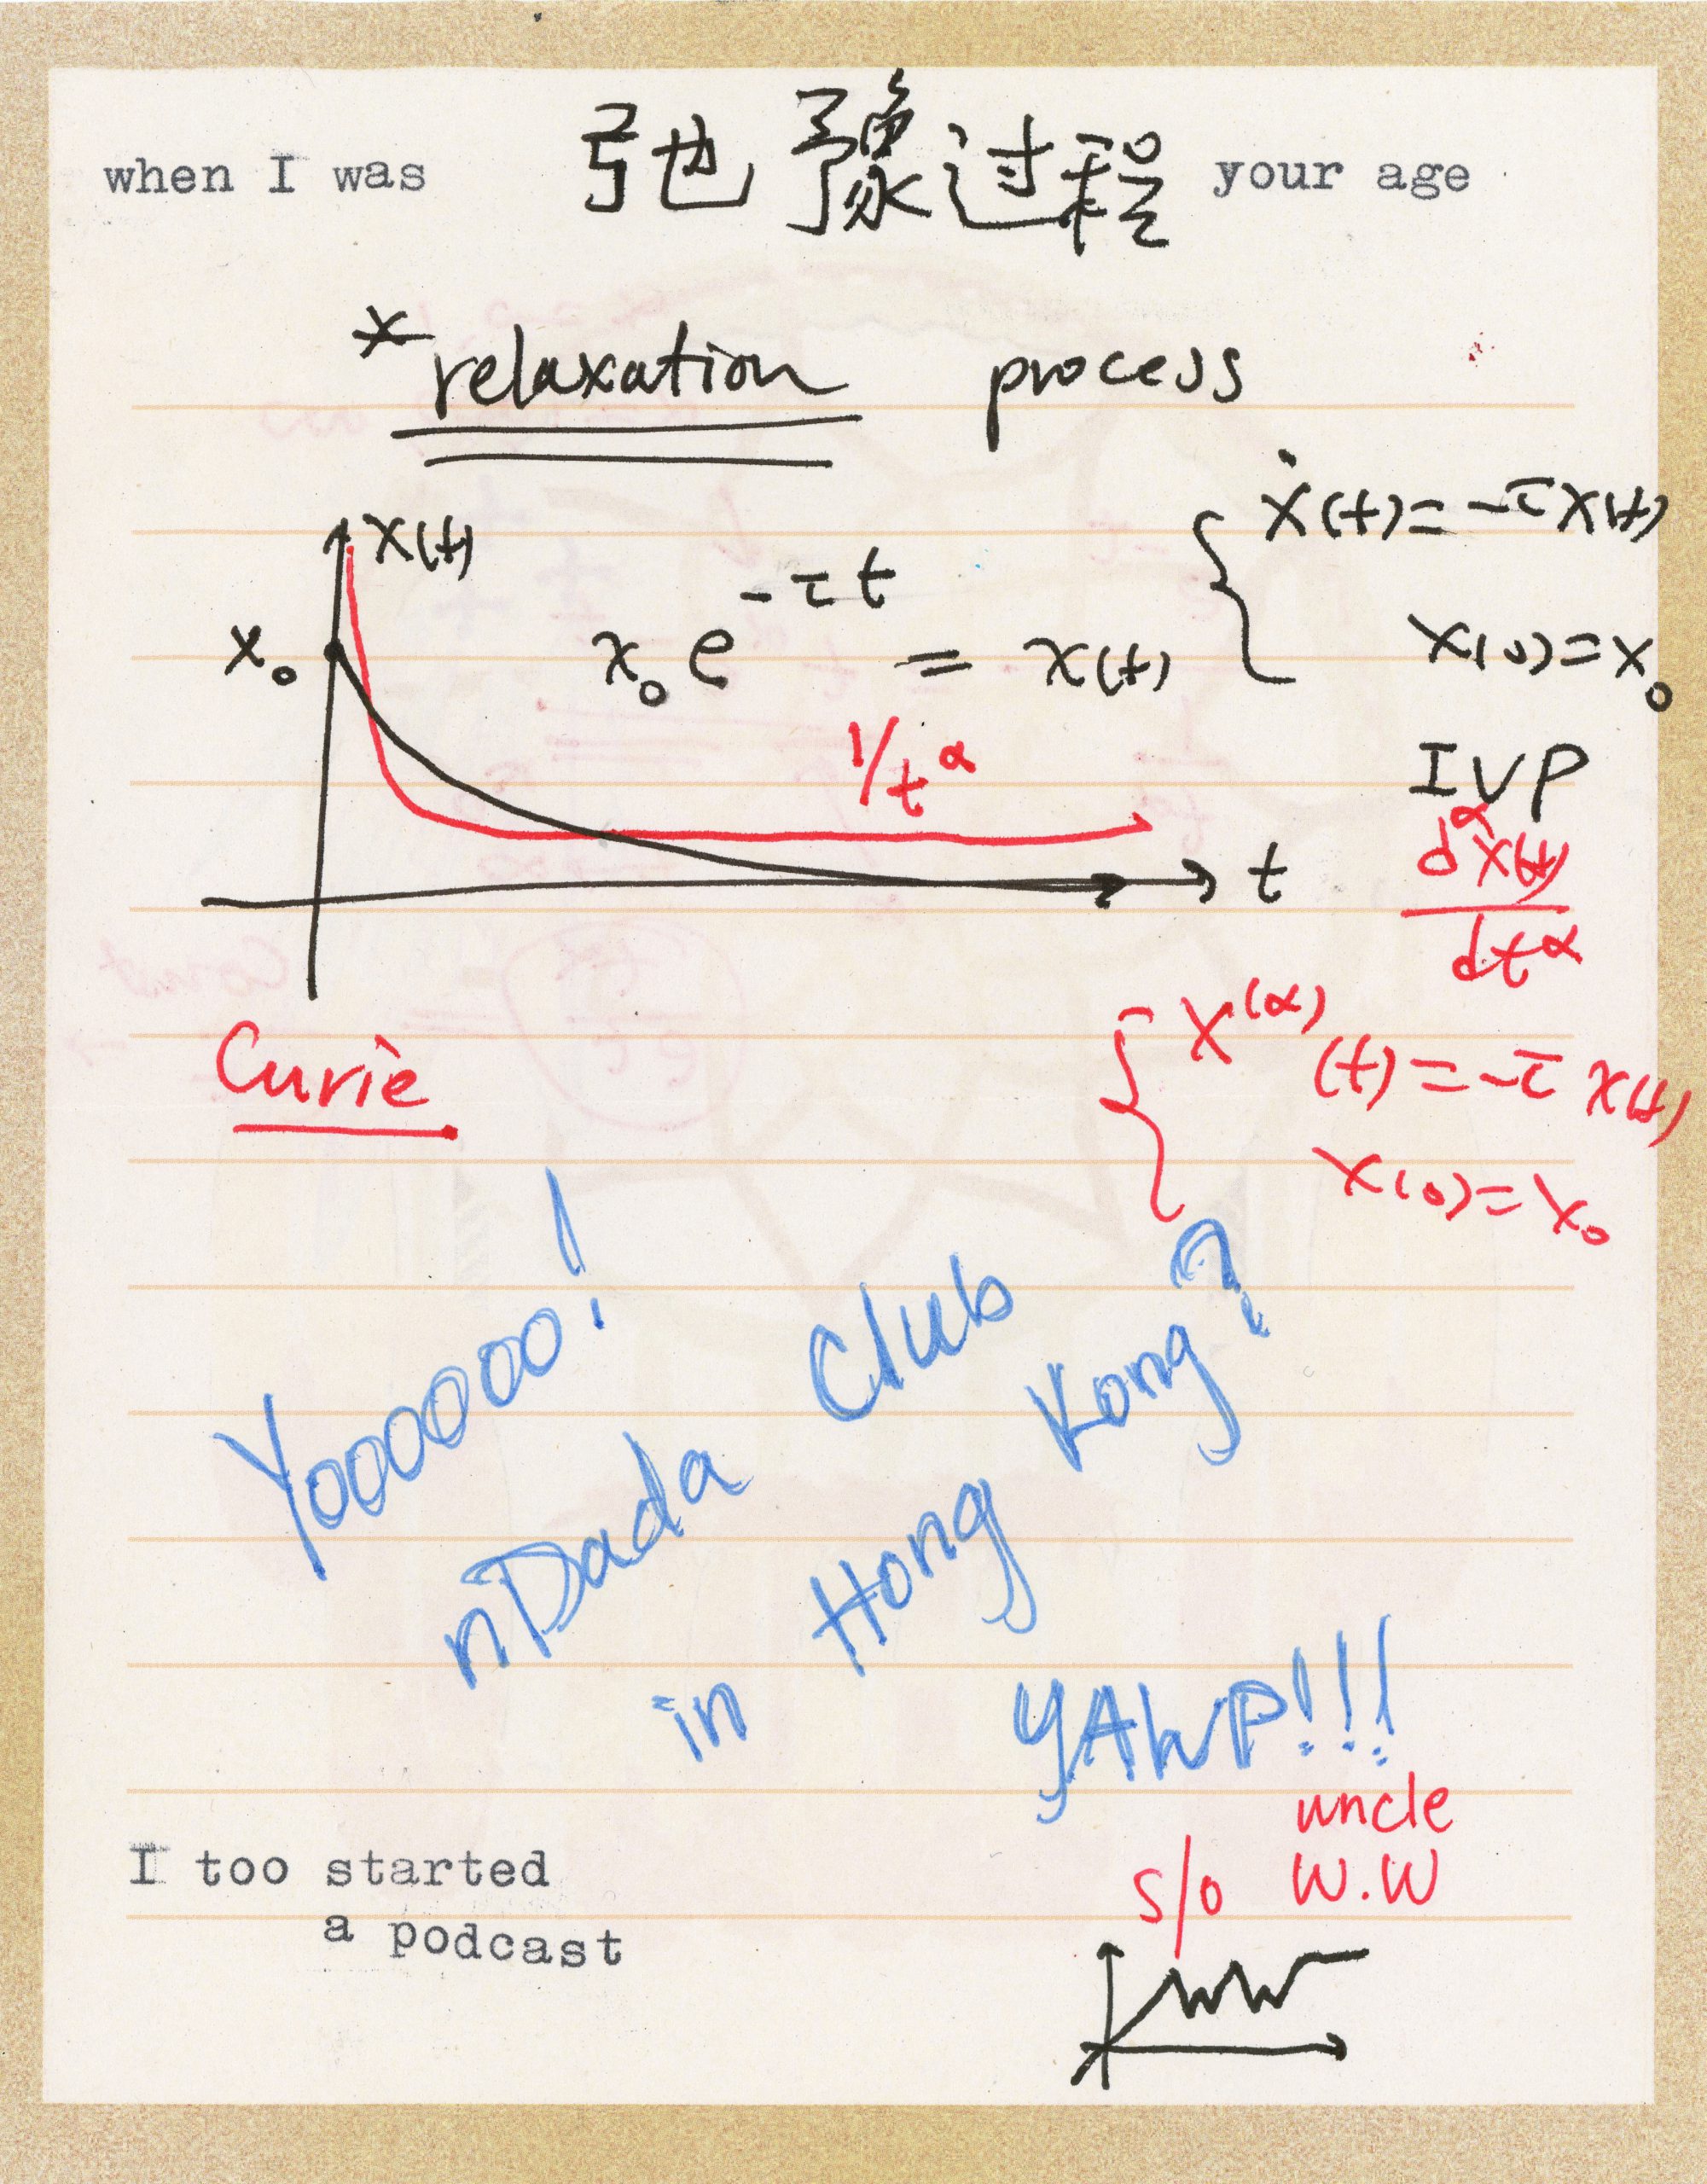 when I was 弛豫过程 your age
*relaxation process
x(t)
x₀
x₀e^{-τt} = x(t)
{ ẋ(t) = -τx(t)
x(0) = x₀
IVP
1/t^α
t
d^αx(t)
dt^α
Curiè
{ x^(α)(t) = -τx(t)
x(0) = x₀
Yoooooo!
nDada Club
in Hong Kong?
YAWP!!!
uncle
s/o W.W
I too started
a podcast